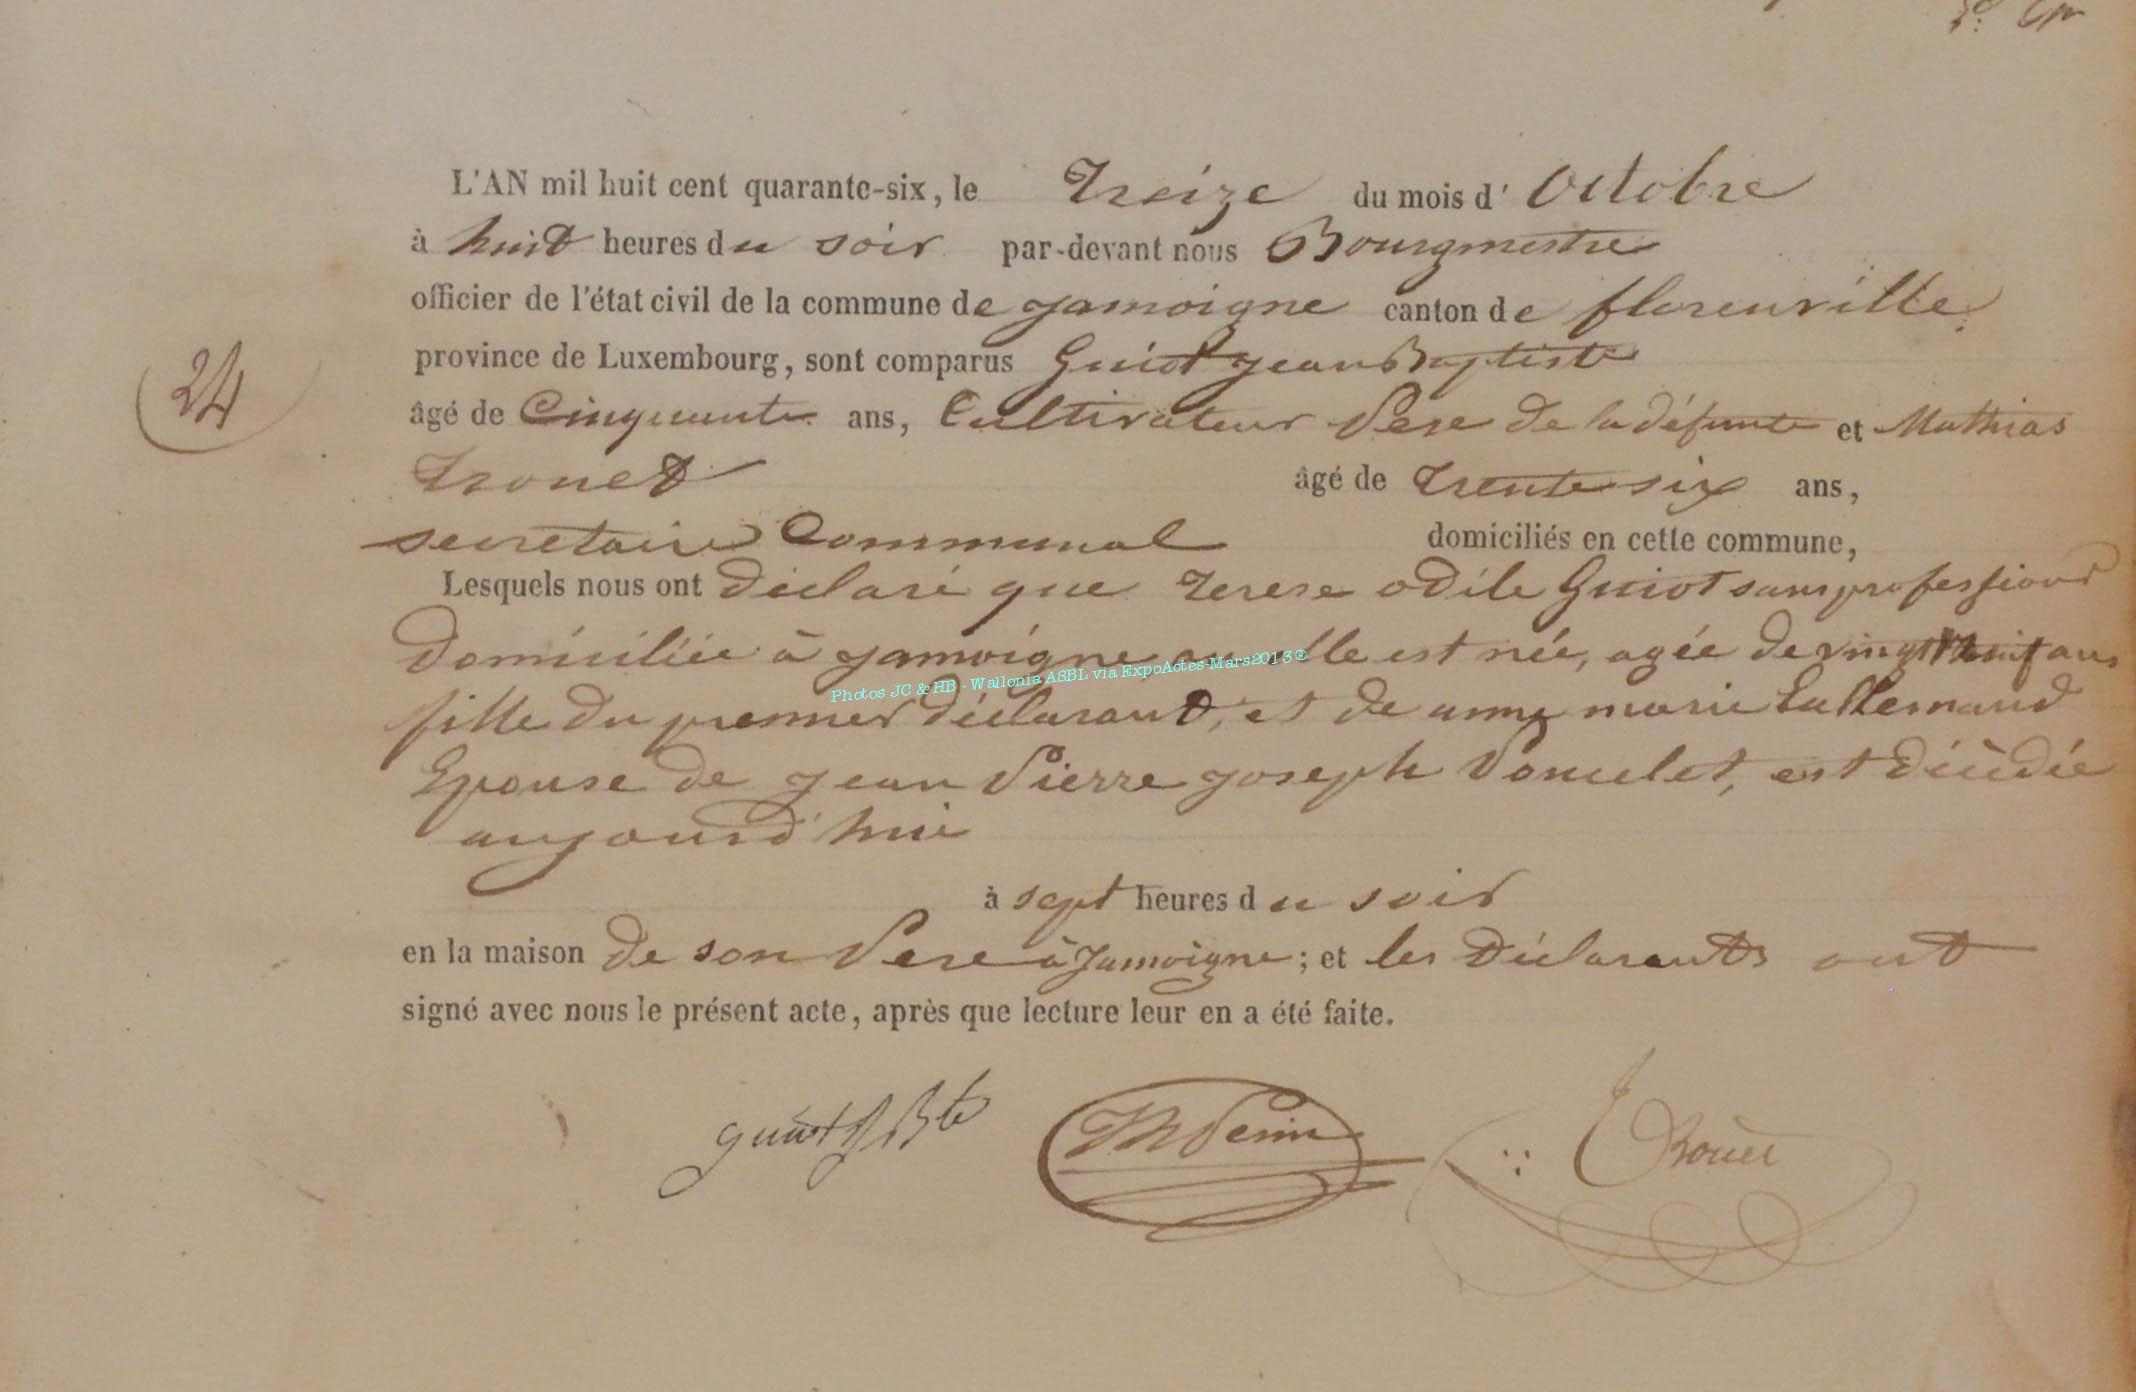 L'AN mil huit cent quarante-six, le Treize du mois d' Octobre
à huit heures du soir par-devant nous Bourgmestre
officier de l'état civil de la commune de Jamoigne canton de florenville
province de Luxembourg, sont comparus Guiot Jean Baptiste
24
âgé de Cinquante ans, Cultivateur Pere de la défunte et Mathias
Trouet âgé de Trente six ans,
secretaire Communal domiciliés en cette commune,
Lesquels nous ont déclaré que Terese odile Guiot sans profession
domiciliée à Jamoigne, où elle est née, agée de vingt huit ans
fille du premier déclarant, et de anne marie Lallemand
Epouse de Jean Pierre Joseph Poncelet, est décédée
aujourd'hui
à sept heures du soir
en la maison de son Pere à Jamoigne; et les déclarants ont
signé avec nous le présent acte, après que lecture leur en a été faite.
guiot J Bte Perin
Photos JC & HB - Wallonia ASBL via ExpoActes-Mars2013©